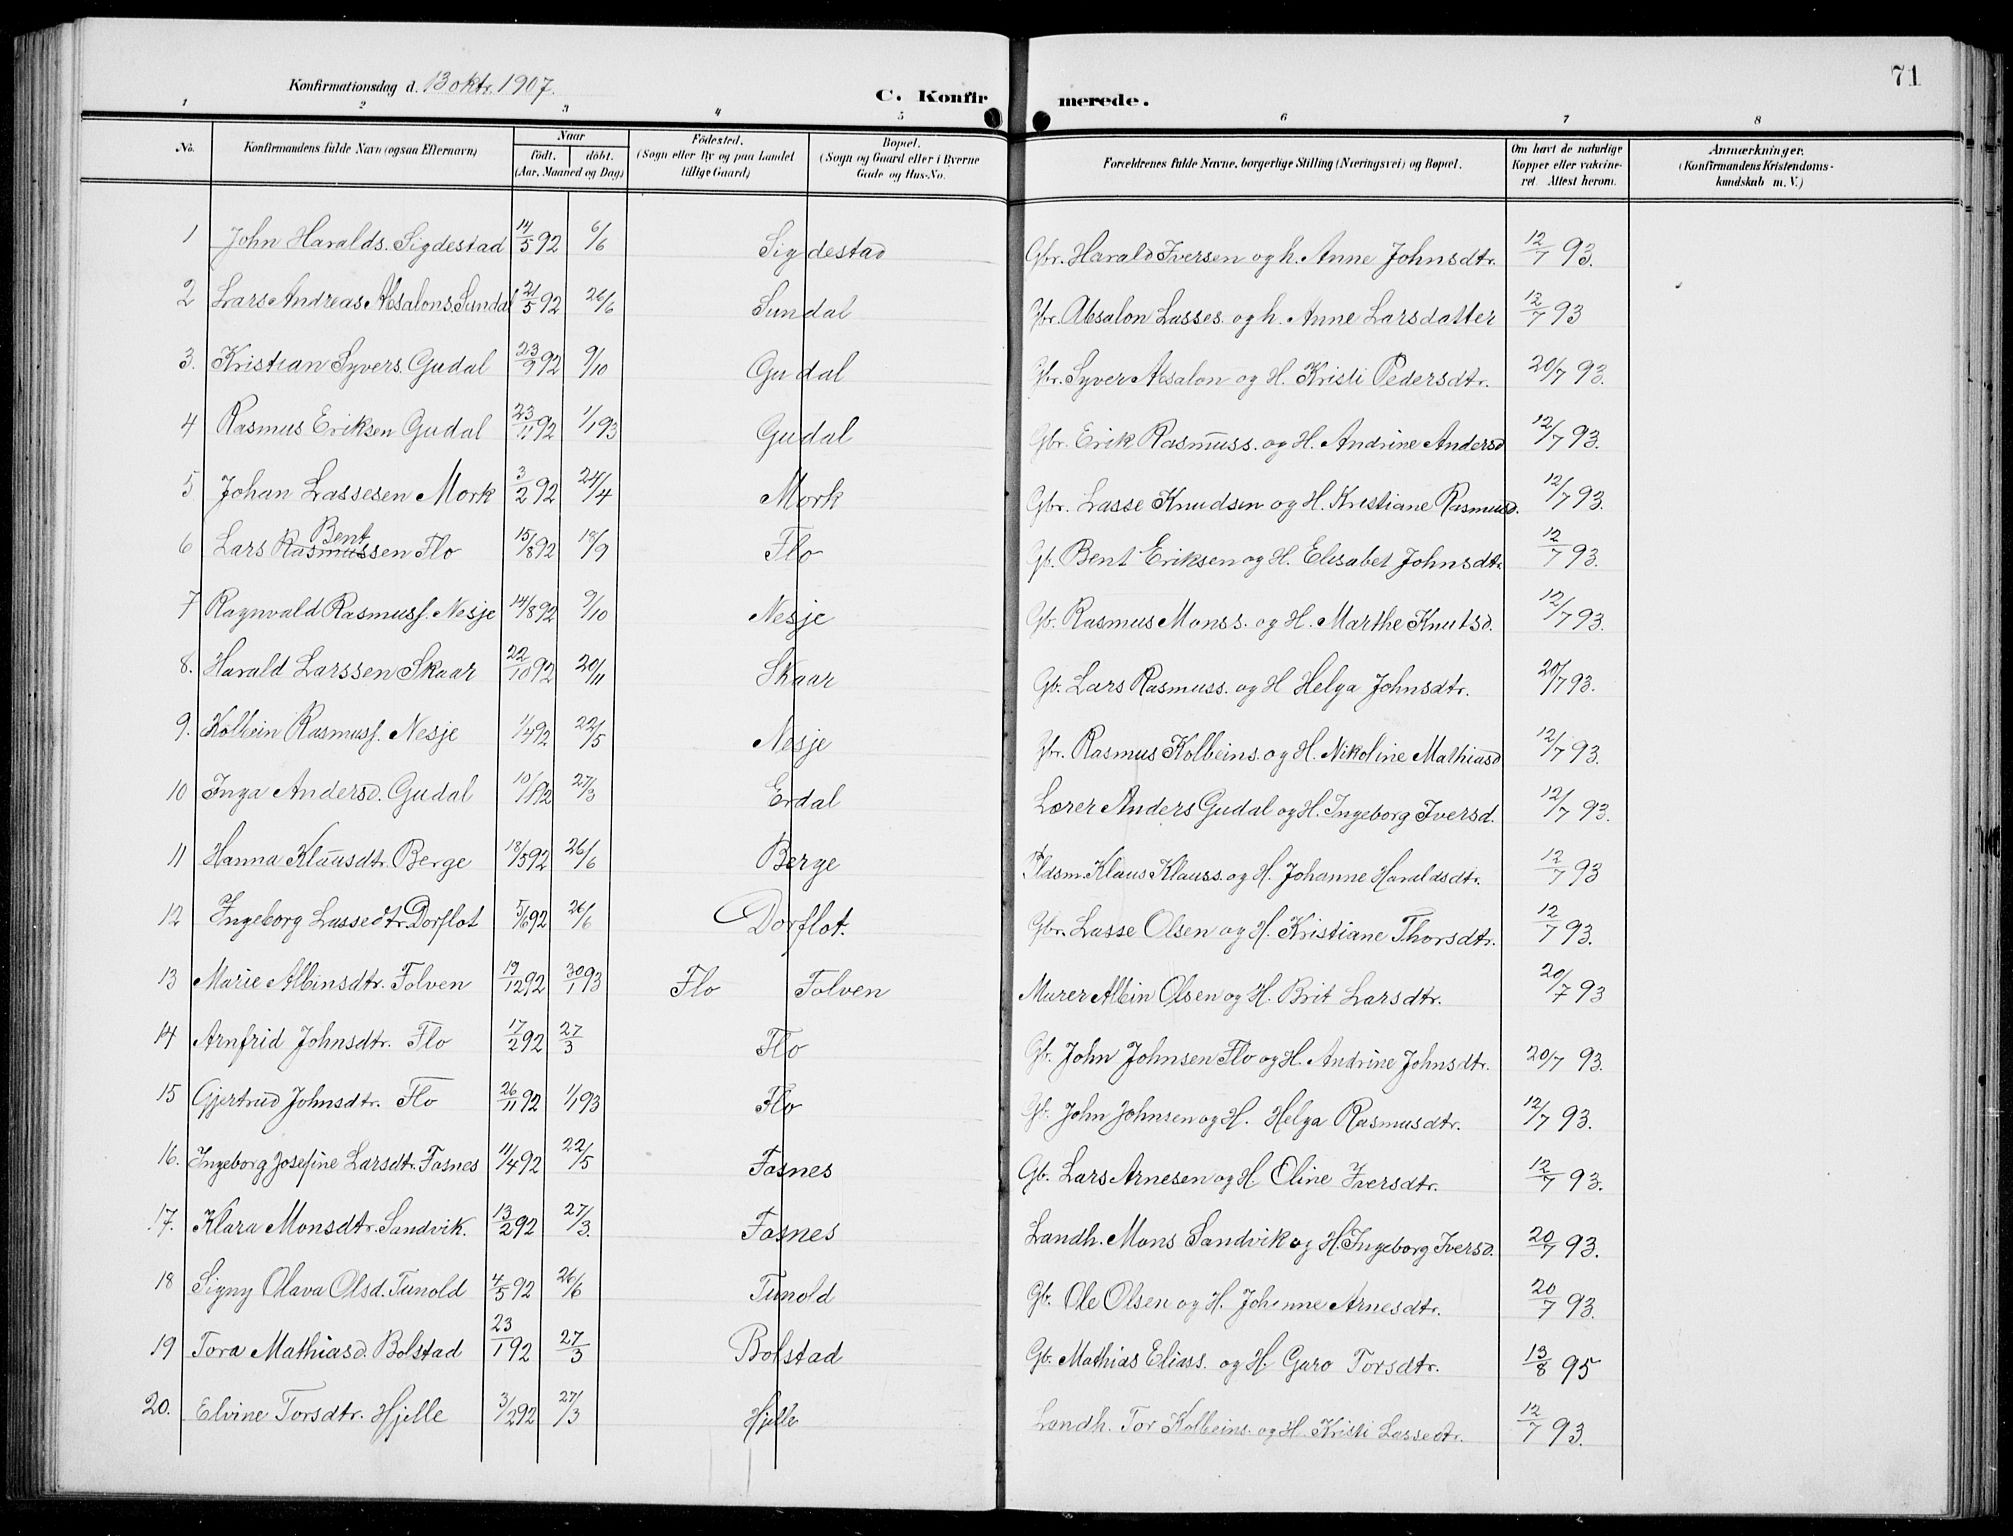 71
Konfirmationsdag d. 13 oktr. 1907.
C. Konfirmerede.
1 2 3 4 5 6 7 8
No. Konfirmandens fulde Navn (ogsaa Efternavn) Naar født. døbt. (Aar, Maaned og Dag) Födested. (Sogn eller By og paa Landet tillige Gaard) Bopæl. (Sogn og Gaard eller i Byerne Gade og Hus-No. Forældrenes fulde Navne, borgerlige Stilling (Næringsvei) og Bopæl. Om havt de naturlige Kopper eller vakcineret. Attest herom. Anmærkninger. (Konfirmandens Kristendomskundskab m. V.)
1 John Haralds. Sigdestad 14/5 92 6/6 Sigdestad Gbr. Harald Iversen og h. Anne Johnsdtr. 12/7 93.
2 Lars Andreas Absalons. Sundal 21/5 92 26/6 Sundal Gbr. Absalon Lasses. og h. Anne Larsdatter 12/7 93
3. Kristian Syvers. Gudal 23/9 92 9/10 Gudal Gbr. Syver Absalon og H. Kristi Pedersdtr. 20/7 93.
4 Rasmus Eriksen Gudal 23/11 92 1/1 93 Gudal Gbr. Erik Rasmuss. og H. Andrine Andersd 12/7 93.
5 Johan Lassesen Mork 3/2 92 24/4 Mork Gbr. Lasse Knudsen og H. Kristiane Rasmusd. 12/7 93.
6 Lars Rasmussen Bent Flo 15/8 92 18/9 Flo Gb. Bent Eriksen og H. Elisabet Johnsdtr 12/7 93.
7 Ragnvald Rasmuss. Nesje 14/8 92 9/10 Nesje Gb. Rasmus Monss. og H. Marthe Knutsd. 12/7 93.
8. Harald Larssen Skaar 22/10 92 20/11 Skaar Gb. Lars Rasmuss. og H Helga Johnsdtr. 20/7 93.
9. Kolbein Rasmuss. Nesje 1/4 92 22/5 Nesje Gbr. Rasmus Kolbeins. og H. Nikoline Mathiasd 12/7 93.
10 Inga Andersd. Gudal 10/1 92 27/3 Erdal Lærer Anders Gudal og H. Ingeborg Iversd. 12/7 93.
11 Hanna Klausdtr. Berge 18/5 92 26/6 Berge Pladsm. Klaus Klauss. og H. Johanne Haraldsdtr. 12/7 93
12 Ingeborg Lassedtr. Dorflot 5/6 92 26/6 Dorflot. Gbr. Lasse Olsen og H. Kristiane Thorsdtr. 12/7 93.
13 Marie Albinsdtr. Folven 19/12 92 30/1 93 Flo Folven Murer Albin Olsen og H. Brit Larsdtr. 20/7 93
14 Arnfrid Johnsdtr. Flo 17/2 92 27/3 Flo Gb. John Johnsen Flo og H. Andrine Johnsdtr. 20/7 93.
15 Gjertrud Johnsdtr. Flo 26/11 92 1/1 93 Flo Gb. John Johnsen og H. Helga Rasmusdtr. 12/7 93.
16. Ingeborg Josefine Larsdtr. Fosnes 11/4 92 22/5 Fosnes Gb. Lars Arnesen og H. Oline Iversdtr. 12/7 93.
17. Klara Monsdtr. Sandvik. 13/2 92 27/3. Fosnes Landh. Mons Sandvik og H. Ingeborg Iversd. 20/7 93.
18 Signy Olava Olsd. Tunold 4/5 92 26/6 Tunold Gb. Ole Olsen og H. Johanne Arnesdtr. 20/7 93.
19 Tora Mathiasd. Bolstad 23/1 92 27/3 Bolstad Gb. Mathias Eliass. og H. Guro Torsdtr. 13/8 95
20. Elvine Torsdtr. Hjelle 3/2 92 27/3 Hjelle Landh. Tor Kolbeins. og H. Kristi Lassedtr. 12/7 93.